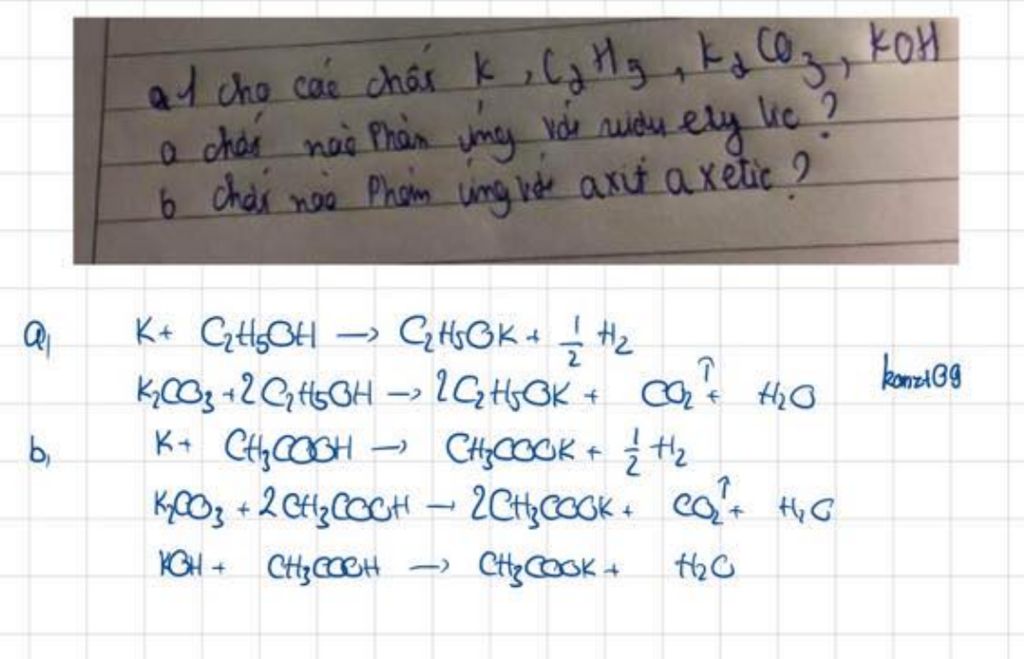 a1 cho các chất K, C₂H₅, K₂CO₃, KOH
a chất nào Phản ứng với rượu ety lic ?
b chất nào Phản ứng với axit axetic ?
a, K + C₂H₅OH → C₂H₅OK + 1/2 H₂
K₂CO₃ + 2C₂H₅OH → 2C₂H₅OK + CO₂↑ + H₂O
b, K + CH₃COOH → CH₃COOK + 1/2 H₂
K₂CO₃ + 2CH₃COOH → 2CH₃COOK + CO₂↑ + H₂O
KOH + CH₃COOH → CH₃COOK + H₂O